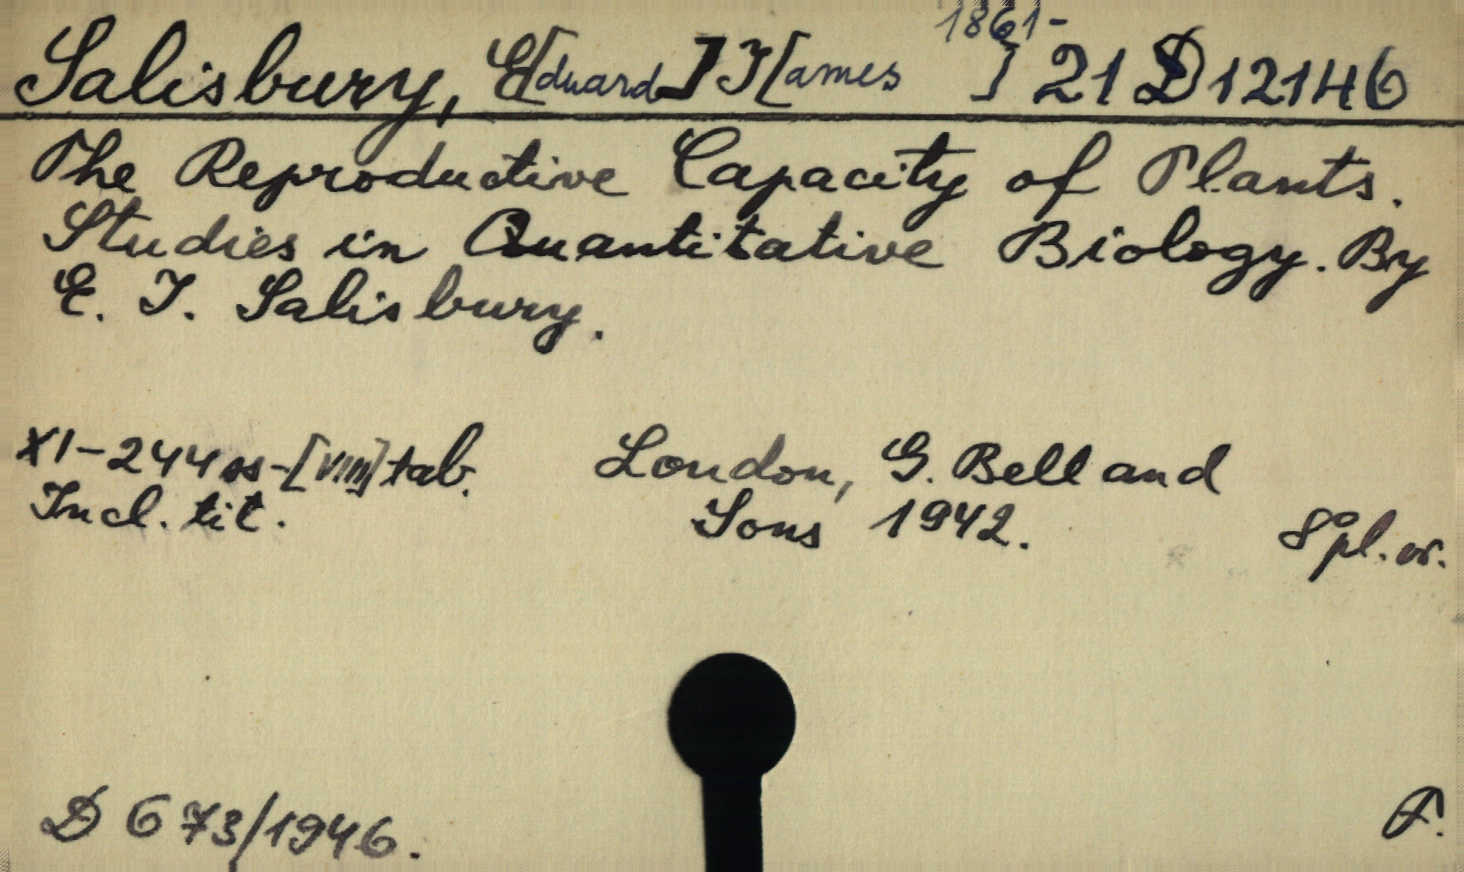 Salisbury, E[duard] J[ames 1861- ] 21 D 12146
The Reproductive Capacity of Plants.
Studies in Quantitative Biology. By
E. J. Salisbury.
XI-244 ss-[VIII] tab. London, G. Bell and
Incl. tit. Sons 1942. 8° pl. or.
D 673/1946. F.